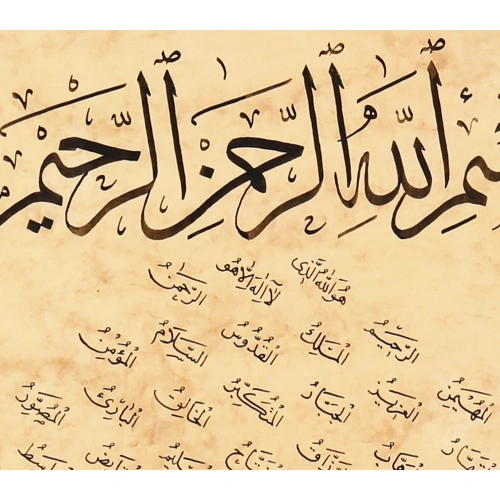 بِسْمِ اللّٰهِ الرَّحْمٰنِ الرَّحِيْمِ
هُوَ اللّٰهُ الَّذِى لَا اِلٰهَ اِلَّا هُوَ الرَّحْمٰنُ
الرَّحِيْمُ الْمَلِكُ الْقُدُّوْسُ السَّلَامُ الْمُؤْمِنُ
الْمُهَيْمِنُ الْعَزِيْزُ الْجَبَّارُ الْمُتَكَبِّرُ الْخَالِقُ الْبَارِئُ الْمُصَوِّرُ